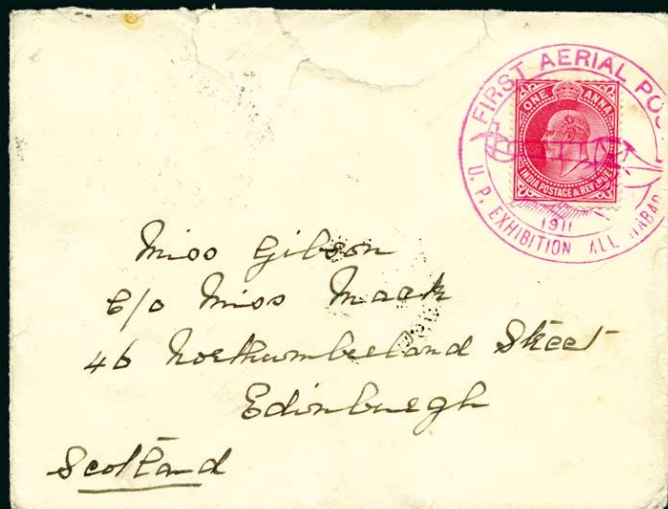 FIRST AERIAL POS
ONE ANNA
INDIA POSTAGE & REVENUE
1911
U. P. EXHIBITION ALLAHABAD
Miss Gibson
c/o Miss Mack
46 Northumberland Street
Edinburgh
Scotland